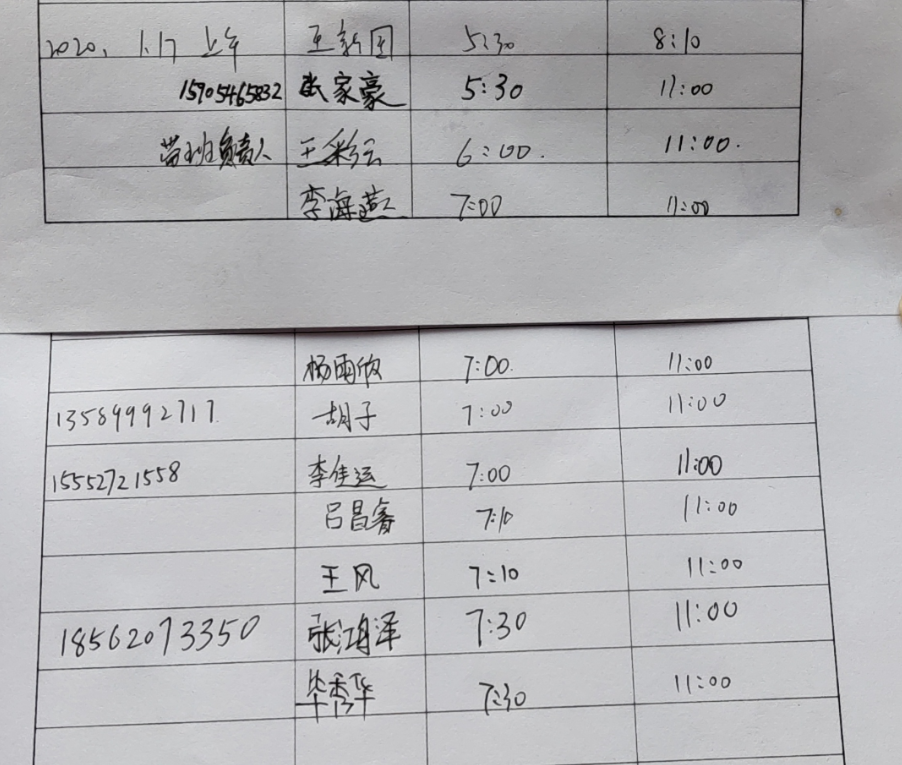 2020. 1.17 上午 王新国 5:30 8:10
15905465832 张家豪 5:30 11:00
带班负责人 王彩云 6:00. 11:00.
李海燕 7:00 11:00
杨雨欣 7:00. 11:00
13589992717 胡子 7:00 11:00
15552721558 李佳运 7:00 11:00
吕昌睿 7:10 11:00
王风 7:10 11:00
18562073350 张鸿泽 7:30 11:00
毕秀华 7:30 11:00